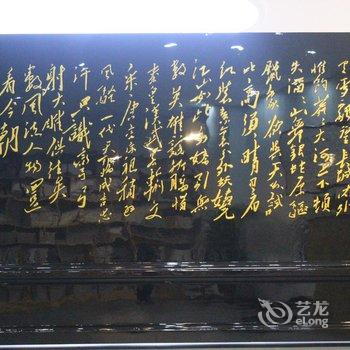 里雪飘望长城内外
惟余莽莽大河上下顿
失滔滔山舞银蛇原驰
腊象欲与天公试
比高须晴日看
红装素裹分外妖娆
江山如此多娇引无
数英雄竞折腰惜
秦皇汉武略输文
采唐宗宋祖稍逊
风骚一代天骄成吉思
汗只识弯弓
射大雕俱往矣
数风流人物还
看今朝
艺龙
eLong